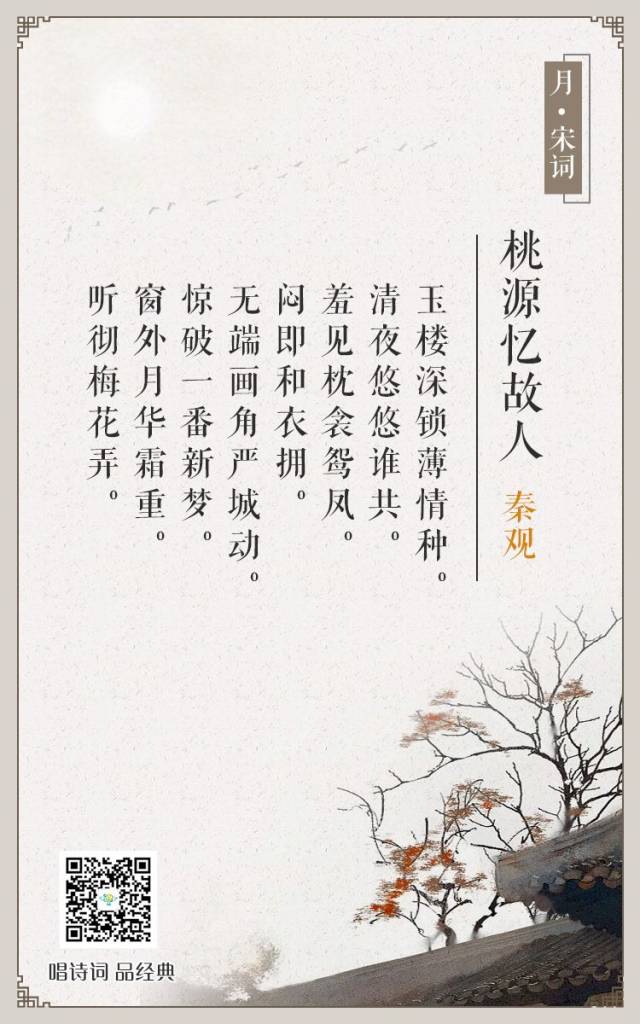 月·宋词
桃源忆故人
秦观
玉楼深锁薄情种。
清夜悠悠谁共。
羞见枕衾鸳凤。
闷即和衣拥。
无端画角严城动。
惊破一番新梦。
窗外月华霜重。
听彻梅花弄。
唱诗词 品经典